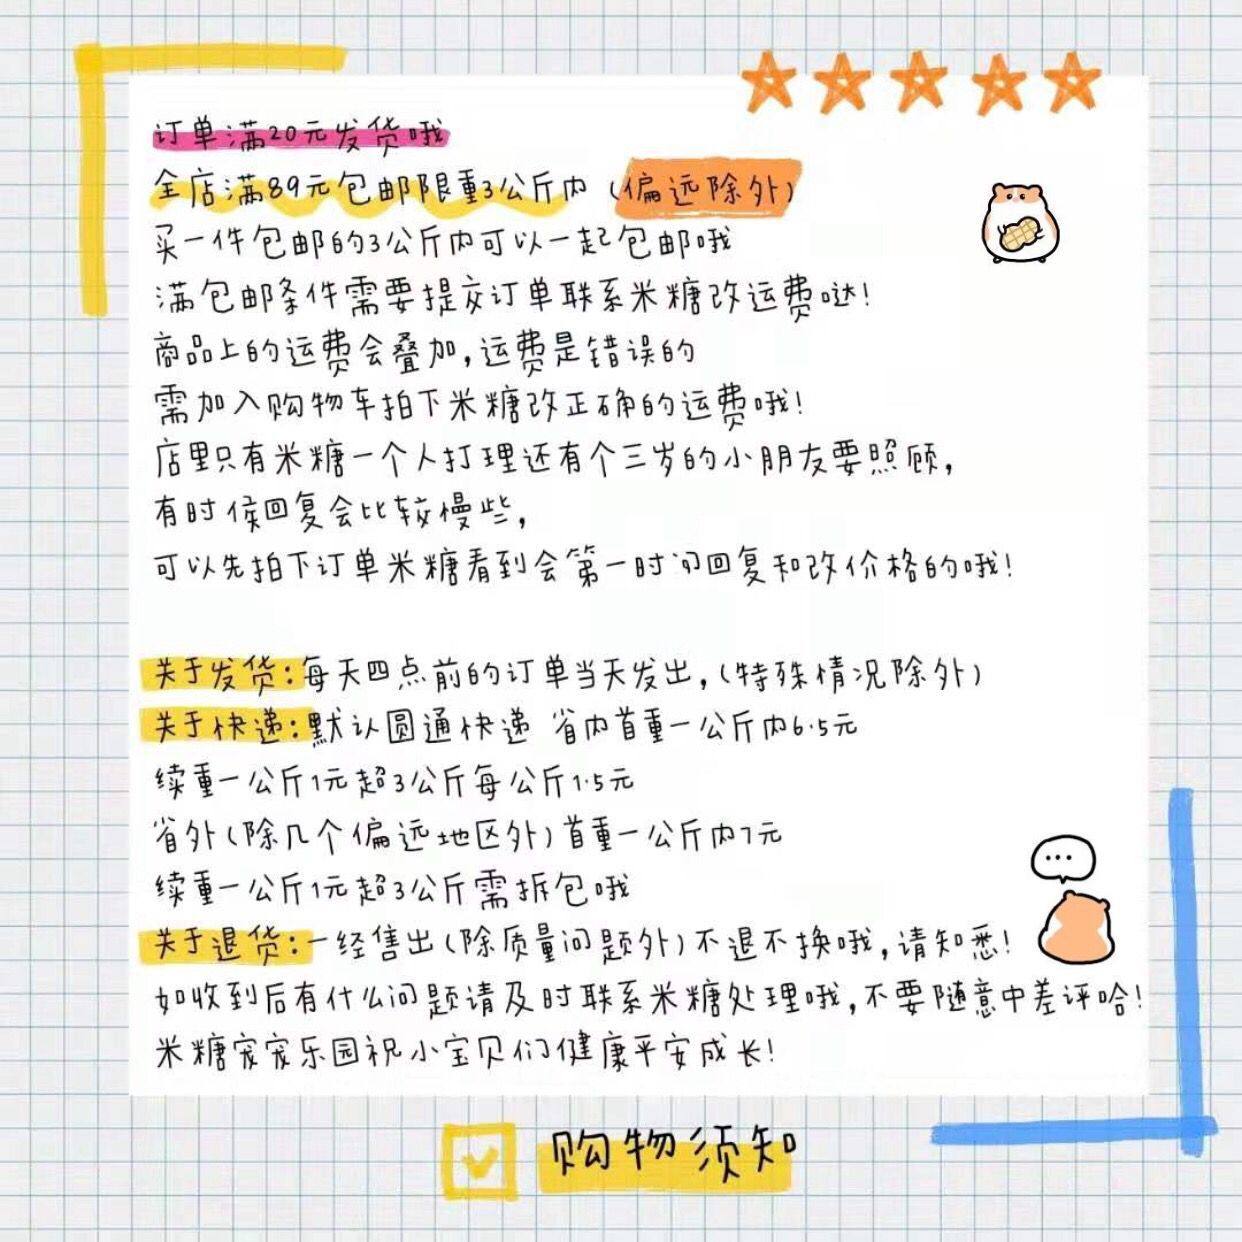 订单满20元发货哦
全店满89元包邮限重3公斤内(偏远除外)
买一件包邮的3公斤内可以一起包邮哦
满包邮条件需要提交订单联系米糖改运费哒!
商品上的运费会叠加,运费是错误的
需加入购物车拍下米糖改正确的运费哦!
店里只有米糖一个人打理还有个三岁的小朋友要照顾,
有时侯回复会比较慢些,
可以先拍下订单米糖看到会第一时间回复和改价格的哦!
关于发货:每天四点前的订单当天发出,(特殊情况除外)
关于快递:默认圆通快递 省内首重一公斤内6.5元
续重一公斤1元超3公斤每公斤1.5元
省外(除几个偏远地区外)首重一公斤内7元
续重一公斤1元超3公斤需拆包哦
关于退货:一经售出(除质量问题外)不退不换哦,请知悉!
如收到后有什么问题请及时联系米糖处理哦,不要随意中差评哈!
米糖宠宠乐园祝小宝贝们健康平安成长!
购物须知